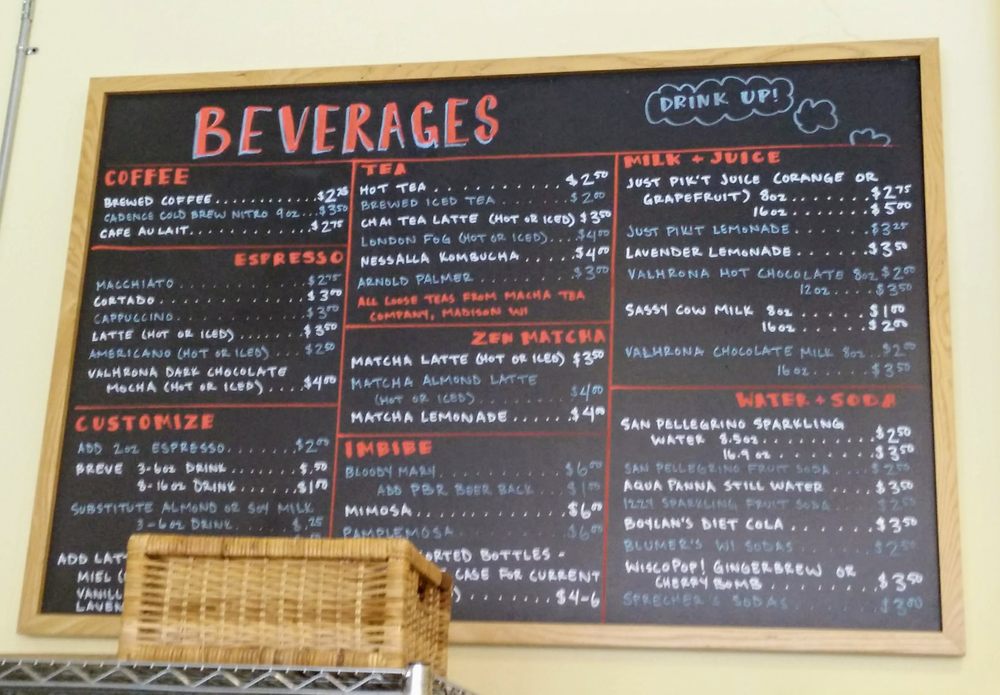 BEVERAGES
DRINK UP!
COFFEE
BREWED COFFEE............$2.25
CADENCE COLD BREW NITRO 9oz...$3.50
CAFE AU LAIT..........$2.75
ESPRESSO
MACCHIATO..............$2.75
CORTADO................$3.00
CAPPUCCINO.............$3.00
LATTE (HOT OR ICED).......$3.50
AMERICANO (HOT OR ICED)...$2.50
VALHRONA DARK CHOCOLATE
MOCHA (HOT OR ICED)....$4.00
CUSTOMIZE
ADD 2oz ESPRESSO.......$2.00
BREVE 3-6oz DRINK......$.50
8-16oz DRINK......$1.00
SUBSTITUTE ALMOND OR SOY MILK
3-6oz DRINK....$.25
ADD LAT
MIEL (
VANILL
LAVEN
TEA
HOT TEA..............$2.50
BREWED ICED TEA.......$2.00
CHAI TEA LATTE (HOT OR ICED) $3.50
LONDON FOG (HOT OR ICED)....$4.00
NESSALLA KOMBUCHA.....$4.00
ARNOLD PALMER.........$3.00
ALL LOOSE TEAS FROM MACHA TEA
COMPANY, MADISON WI
ZEN MATCHA
MATCHA LATTE (HOT OR ICED) $3.50
MATCHA ALMOND LATTE
(HOT OR ICED).........$4.00
MATCHA LEMONADE......$4.00
IMBIBE
BLOODY MARY..........$6.00
ADD PBR BEER BACK...$1.00
MIMOSA...............$6.00
PAMPLEMOSA...........$6.00
ORTED BOTTLES -
CASE FOR CURRENT
)........$4-6
MILK + JUICE
JUST PIK'T JUICE (ORANGE OR
GRAPEFRUIT) 8oz.......$2.75
16oz.......$5.00
JUST PIK'T LEMONADE.......$3.25
LAVENDER LEMONADE.......$3.50
VALHRONA HOT CHOCOLATE 8oz $2.00
12oz....$3.50
SASSY COW MILK 8oz.......$1.00
16oz.......$2.00
VALHRONA CHOCOLATE MILK 8oz..$2.00
16oz....$3.50
WATER + SODA
SAN PELLEGRINO SPARKLING
WATER 8.5oz...........$2.50
16.9oz..........$3.50
SAN PELLEGRINO FRUIT SODA....$2.50
AQUA PANNA STILL WATER....$3.50
IZZY SPARKLING FRUIT SODA...$2.50
BOYLAN'S DIET COLA.......$3.50
BLUMER'S WI SODAS........$2.50
WISCOPOP! GINGERBREW OR
CHERRY BOMB........$3.50
SPRECHER'S SODAS.......$3.00